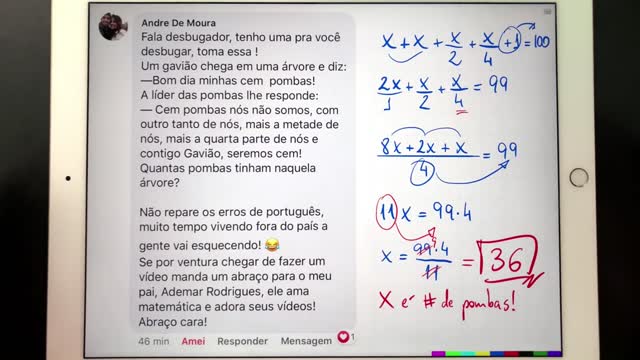 Andre De Moura
Fala desbugador, tenho uma pra você
desbugar, toma essa !
Um gavião chega em uma árvore e diz:
—Bom dia minhas cem pombas!
A líder das pombas lhe responde:
— Cem pombas nós não somos, com
outro tanto de nós, mais a metade de
nós, mais a quarta parte de nós e
contigo Gavião, seremos cem!
Quantas pombas tinham naquela
árvore?
Não repare os erros de português,
muito tempo vivendo fora do país a
gente vai esquecendo! 😂
Se por ventura chegar de fazer um
vídeo manda um abraço para o meu
pai, Ademar Rodrigues, ele ama
matemática e adora seus vídeos!
Abraço cara!
46 min Amei Responder Mensagem 1
x + x + x/2 + x/4 + 1 = 100
2x/1 + x/2 + x/4 = 99
8x + 2x + x / 4 = 99
11x = 99.4
x = 99.4 / 11 = 36
9
X é # de pombas!